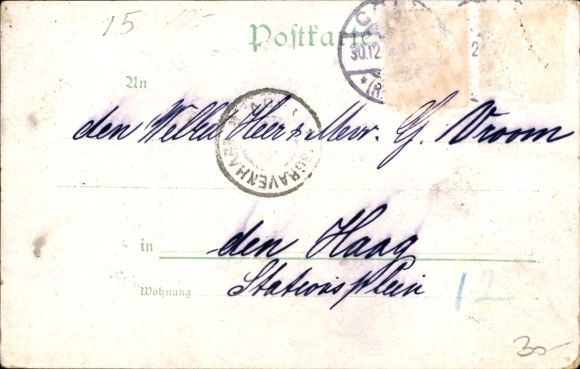 15 10-
Postkarte
30.12
2
An
den WelEd. Heer & Mevr. G. Vroom
'SGRAVENHA
in den Haag
Wohnung Stationsplein 12
30-